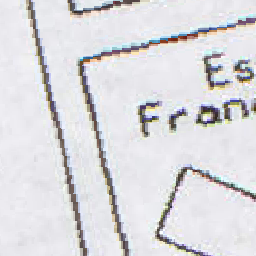 Es
Fran